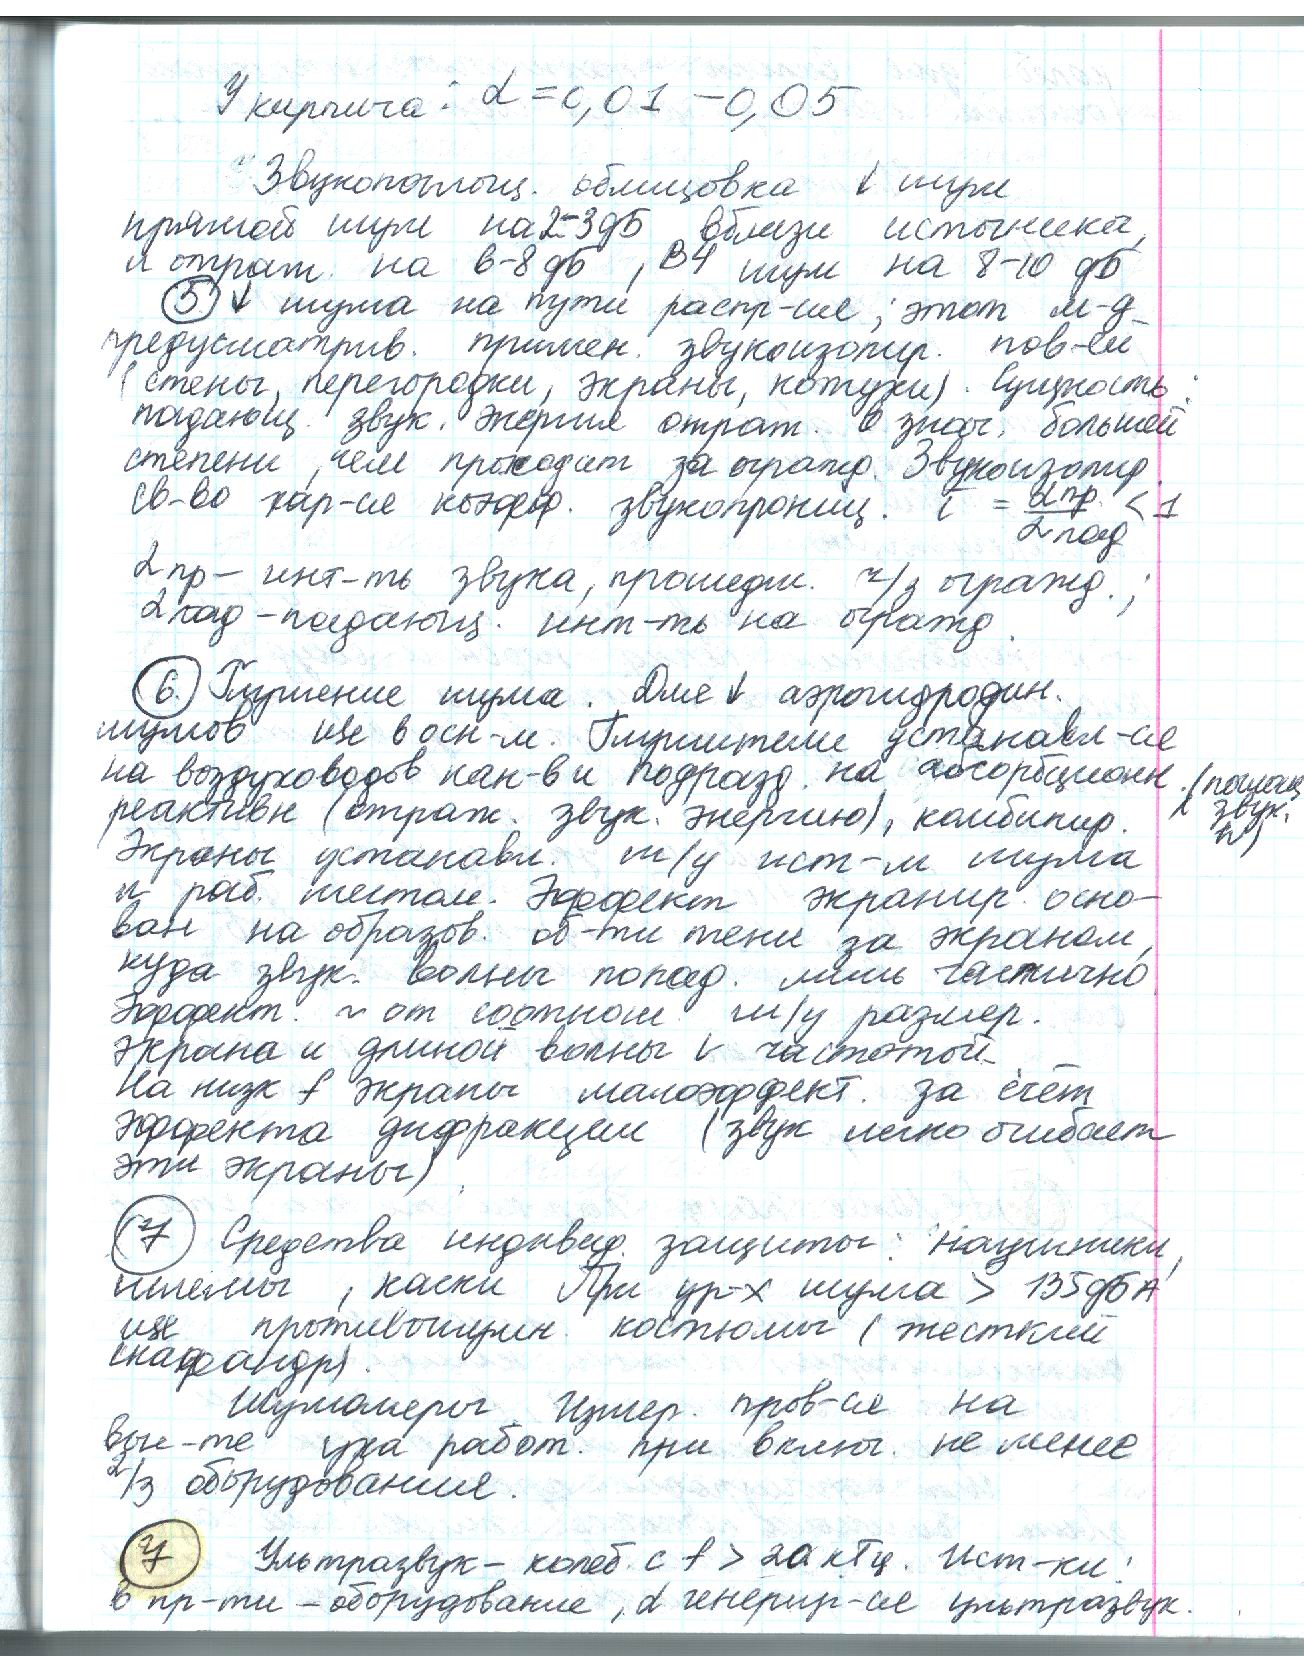 У кирпича: α = 0,01 – 0,05
Звукопоглощ. облицовка ↓ шум
прямой шум на 2-3 дБ вблизи источника,
и отраж. на 6-8 дБ, ВЧ шум на 8-10 дБ
5) ↓ шума на пути распр-ия; этот м-д
предусматрив. примен. звукоизолир. пов-ей
(стены, перегородки, экраны, кожухи). Сущность:
падающ. звук. энергия отраж. в знач. большей
степени, чем проходит за огражд. Звукоизолир.
св-во хар-ся коэфф. звукопрониц. τ = Iпр/Iпад < 1
Iпр – инт-ть звука, прошедш. ч/з огражд.;
Iпад – падающ. инт-ть на огражд.
6. Глушение шума. Для ↓ аэрогидродин.
шумов в осн-м. Глушители устанавл-ся
на воздуховодов кан-в и подразд. на абсорбционн. (поглощ. звук.
реактивн (отраж. звук. энергию), комбинир.
Экраны устанавл. м/у ист-м шума
и раб. местом. Эффект экранир. осно-
ван на образов. об-ти тени за экраном,
куда звук. волны попад. лишь частично
Эффект. ~ от соотнош. м/у размер.
экрана и длиной волны частотой.
На низк f экраны малоэффект. за счёт
эффекта дифракции (звук легко огибает
эти экраны)
7 Средства индивид. защиты: наушники,
шлемы, каски При ур-х шума > 135 дБА
исп противошумн. костюмы (жесткий
скафандр).
Шумомеры Измер. пров-ся на
работ. при включ. не менее
2/3 оборудования.
7 Ультразвук – колеб. с f > 20 кГц. Ист-ки:
в пр-ти – оборудование, генерир-ся ультразвук.